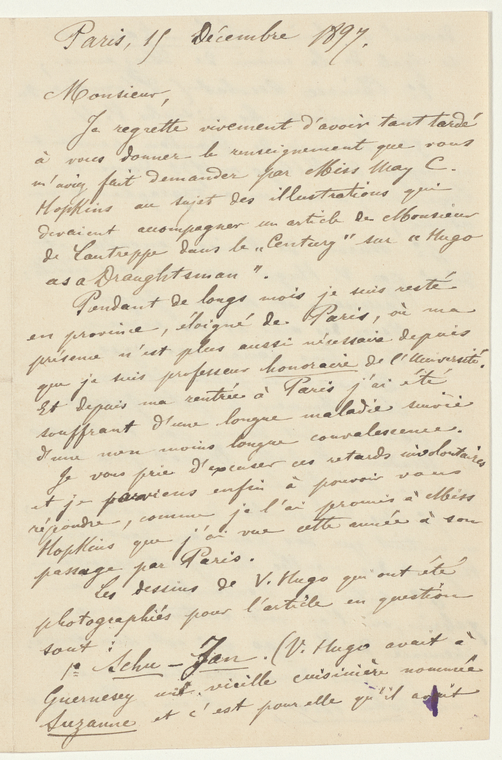 Paris, 15 Décembre 1897.
Monsieur,
Je regrette vivement d'avoir tant tardé
à vous donner le renseignement que vous
m'aviez fait demander par Miss May C.
Hopkins au sujet des illustrations qui
devaient accompagner un article de Monsieur
de Lautreppe dans le „Century" sur « Hugo
as a Draughtsman ".
Pendant de longs mois je suis resté
en province, éloigné de Paris, où ma
présence n'est plus aussi nécessaire depuis
que je suis professeur honoraire de l'Université.
Et depuis ma rentrée à Paris j'ai été
souffrant d'une longue maladie suivie
d'une non moins longue convalescence.
Je vous prie d'excuser ces retards involontaires
et je parviens enfin à pouvoir vous
répondre, comme je l'ai promis à Miss
Hopkins que j'ai vue cette année à son
passage par Paris.
Les dessins de V. Hugo qui ont été
photographiés pour l'article en question
sont :
1º Schu-Jan. (V. Hugo avait à
Guernesey une vieille cuisinière nommée
Suzanne et c'est pour elle qu'il avait